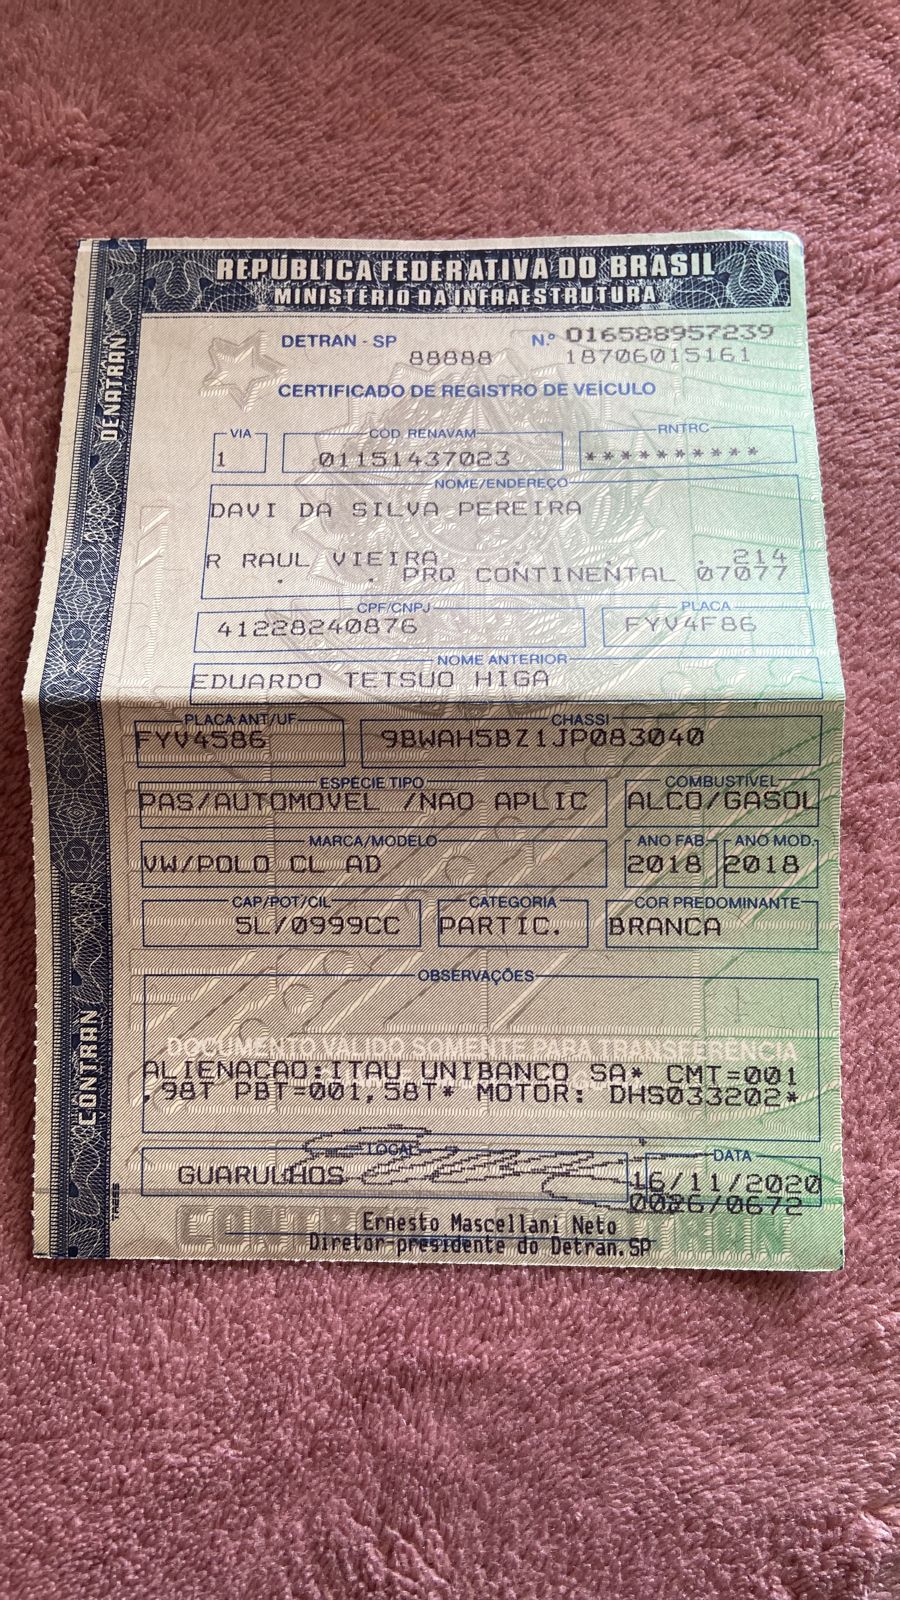 REPÚBLICA FEDERATIVA DO BRASIL
MINISTÉRIO DA INFRAESTRUTURA
DENATRAN
DETRAN - SP Nº 016588957239
88888 18706015161
CERTIFICADO DE REGISTRO DE VEÍCULO
VIA CÓD. RENAVAM RNTRC
1 01151437023 **********
NOME/ENDEREÇO
DAVI DA SILVA PEREIRA
R RAUL VIEIRA . . 214
. . PRQ CONTINENTAL 07077
CPF/CNPJ PLACA
41228240876 FYV4F86
NOME ANTERIOR
EDUARDO TETSUO HIGA
PLACA ANT/UF CHASSI
FYV4586 9BWAH5BZ1JP083040
ESPÉCIE TIPO COMBUSTÍVEL
PAS/AUTOMOVEL /NAO APLIC ALCO/GASOL
MARCA/MODELO ANO FAB. ANO MOD.
VW/POLO CL AD 2018 2018
CAP/POT/CIL CATEGORIA COR PREDOMINANTE
5L/0999CC PARTIC. BRANCA
OBSERVAÇÕES
DOCUMENTO VÁLIDO SOMENTE PARA TRANSFERÊNCIA
ALIENACAO:ITAU UNIBANCO SA* CMT=001
,98T PBT=001,58T* MOTOR: DHS033202*
CONTRAN
LOCAL DATA
GUARULHOS 16/11/2020
0026/0672
Ernesto Mascellani Neto
Diretor-presidente do Detran.SP